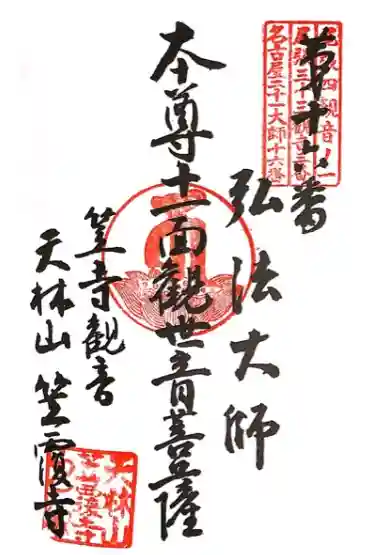 第十六番
弘法大師
本尊十一面觀世音菩薩
笠寺観音
天林山 笠覆寺
尾張四観音ノ一
尾張三十三観音三番
名古屋二十一大師十六番